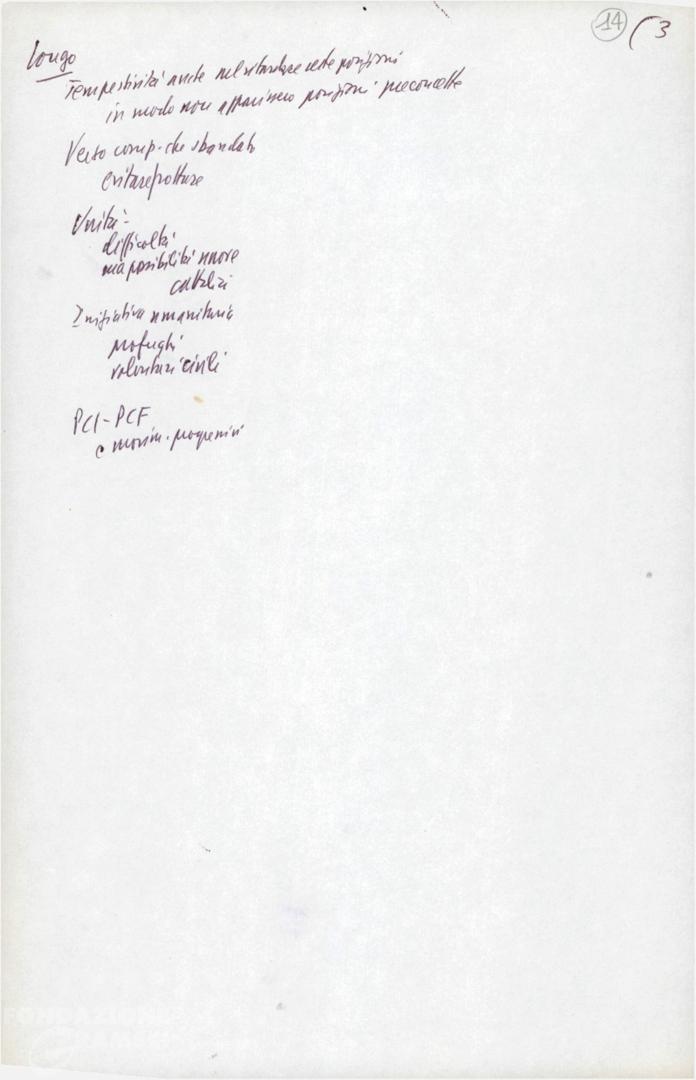 14 (3
Longo
Tempestività anche nel ritardare certe posizioni
in modo non apparissero posizioni preconcette
Verso comp. che sbandato
evitare rotture
Unità -
difficoltà
ma possibilità nuove
cattolici
Iniziativa umanitaria
profughi
volontari civili
PCI-PCF
e movim. progressisti
FONDAZIONE
GRAMSCI